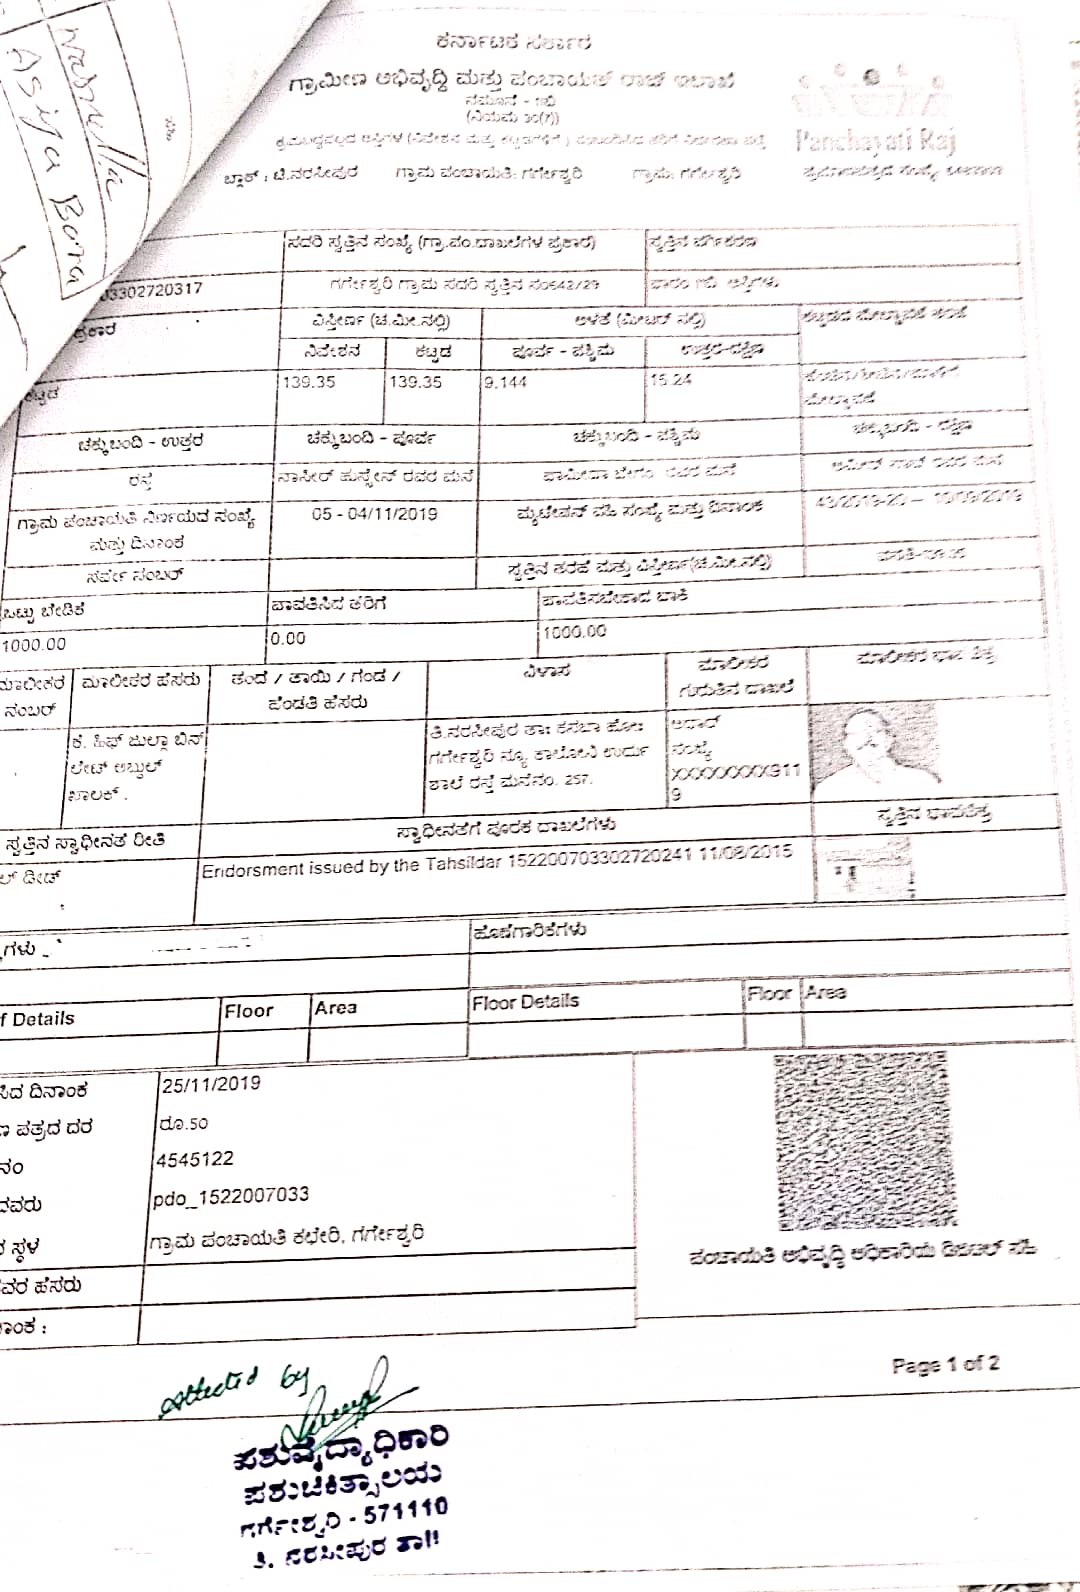 Nasrulla
Asiya Banu
ಕರ್ನಾಟಕ ಸರ್ಕಾರ
ಗ್ರಾಮೀಣ ಅಭಿವೃದ್ಧಿ ಮತ್ತು ಪಂಚಾಯತ್ ರಾಜ್ ಇಲಾಖೆ
ನಮೂನೆ - 11ಬಿ
(ನಿಯಮ 30(7))
Panchayati Raj
ಬ್ಲಾಕ್ : ಟಿ.ನರಸೀಪುರ ಗ್ರಾಮ ಪಂಚಾಯತಿ: ಗರ್ಗೇಶ್ವರಿ ಗ್ರಾಮ: ಗರ್ಗೇಶ್ವರಿ
ಸದರಿ ಸ್ವತ್ತಿನ ಸಂಖ್ಯೆ (ಗ್ರಾ.ಪಂ.ದಾಖಲೆಗಳ ಪ್ರಕಾರ) ಸ್ವತ್ತಿನ ವರ್ಗೀಕರಣ
03302720317 ಗರ್ಗೇಶ್ವರಿ ಗ್ರಾಮ ಸದರಿ ಸ್ವತ್ತಿನ ಸಂ542/29 ಫಾರಂ 11ಬಿ ಆಸ್ತಿಗಳು
ಪ್ರಕಾರ ವಿಸ್ತೀರ್ಣ (ಚ.ಮೀ.ನಲ್ಲಿ) ಅಳತೆ (ಮೀಟರ್ ನಲ್ಲಿ)
ನಿವೇಶನ ಕಟ್ಟಡ ಪೂರ್ವ - ಪಶ್ಚಿಮ ಉತ್ತರ-ದಕ್ಷಿಣ
ಕಟ್ಟಡ 139.35 139.35 9.144 15.24
ಮೇಲ್ಛಾವಣಿ
ಚಕ್ಕುಬಂದಿ - ಉತ್ತರ ಚಕ್ಕುಬಂದಿ - ಪೂರ್ವ ಚಕ್ಕುಬಂದಿ - ಪಶ್ಚಿಮ ಚಕ್ಕುಬಂದಿ - ದಕ್ಷಿಣ
ರಸ್ತೆ ನಾಸೀರ್ ಹುಸ್ಸೇನ್ ರವರ ಮನೆ ಬೇಗಂ ರವರ ಮನೆ ರವರ ಮನೆ
ಗ್ರಾಮ ಪಂಚಾಯತಿ ನಿರ್ಣಯದ ಸಂಖ್ಯೆ 05 - 04/11/2019 ಮ್ಯುಟೇಷನ್ ವಹಿ ಸಂಖ್ಯೆ ಮತ್ತು ದಿನಾಂಕ 43/2019-20 - 10/09/2019
ಮತ್ತು ದಿನಾಂಕ
ಸರ್ವೇ ನಂಬರ್ ಸ್ವತ್ತಿನ ತರಹೆ ಮತ್ತು ವಿಸ್ತೀರ್ಣ(ಚ.ಮೀ.ನಲ್ಲಿ) ವಸತಿ-139.35
ಒಟ್ಟು ಬೇಡಿಕೆ ಪಾವತಿಸಿದ ತೆರಿಗೆ ಪಾವತಿಸಬೇಕಾದ ಬಾಕಿ
1000.00 0.00 1000.00
ಮಾಲೀಕರ ಮಾಲೀಕರ ಹೆಸರು ತಂದೆ / ತಾಯಿ / ಗಂಡ / ವಿಳಾಸ ಮಾಲೀಕರ ಮಾಲೀಕರ ಭಾವ ಚಿತ್ರ
ನಂಬರ್ ಹೆಂಡತಿ ಹೆಸರು ಗುರುತಿನ ದಾಖಲೆ
ಕೆ. ಹಿಫ್ ಜುಲ್ಲಾ ಬಿನ್ ತಿ.ನರಸೀಪುರ ತಾ: ಕಸಬಾ ಹೋ: ಆಧಾರ್
ಲೇಟ್ ಅಬ್ದುಲ್ ಗರ್ಗೇಶ್ವರಿ ನ್ಯೂ ಕಾಲೋನಿ ಉರ್ದು ಸಂಖ್ಯೆ
ಖಾಲಕ್ . ಶಾಲೆ ರಸ್ತೆ ಮನೆನಂ. 257. XXXXXXXX911
9
ಸ್ವತ್ತಿನ ಸ್ವಾಧೀನತೆ ರೀತಿ ಸ್ವಾಧೀನತೆಗೆ ಪೂರಕ ದಾಖಲೆಗಳು ಸ್ವತ್ತಿನ ಭಾವಚಿತ್ರ
ಲ್ ಡೀಡ್ Endorsment issued by the Tahsildar 152200703302720241 11/08/2015
ಗಳು ಹೊಣೆಗಾರಿಕೆಗಳು
f Details Floor Area Floor Details Floor Area
ಸಿದ ದಿನಾಂಕ 25/11/2019
ಣ ಪತ್ರದ ದರ ರೂ.50
ನಂ 4545122
ದವರು pdo_1522007033
ದ ಸ್ಥಳ ಗ್ರಾಮ ಪಂಚಾಯತಿ ಕಛೇರಿ, ಗರ್ಗೇಶ್ವರಿ
ಪಂಚಾಯತಿ ಅಭಿವೃದ್ಧಿ ಅಧಿಕಾರಿಯ ಡಿಜಿಟಲ್ ಸಹಿ
ವರ ಹೆಸರು
ನಾಂಕ :
Page 1 of 2
attected by
ಪಶುವೈದ್ಯಾಧಿಕಾರಿ
ಪಶುಚಿಕಿತ್ಸಾಲಯ
ಗರ್ಗೇಶ್ವರಿ - 571110
ತಿ. ನರಸೀಪುರ ತಾ||